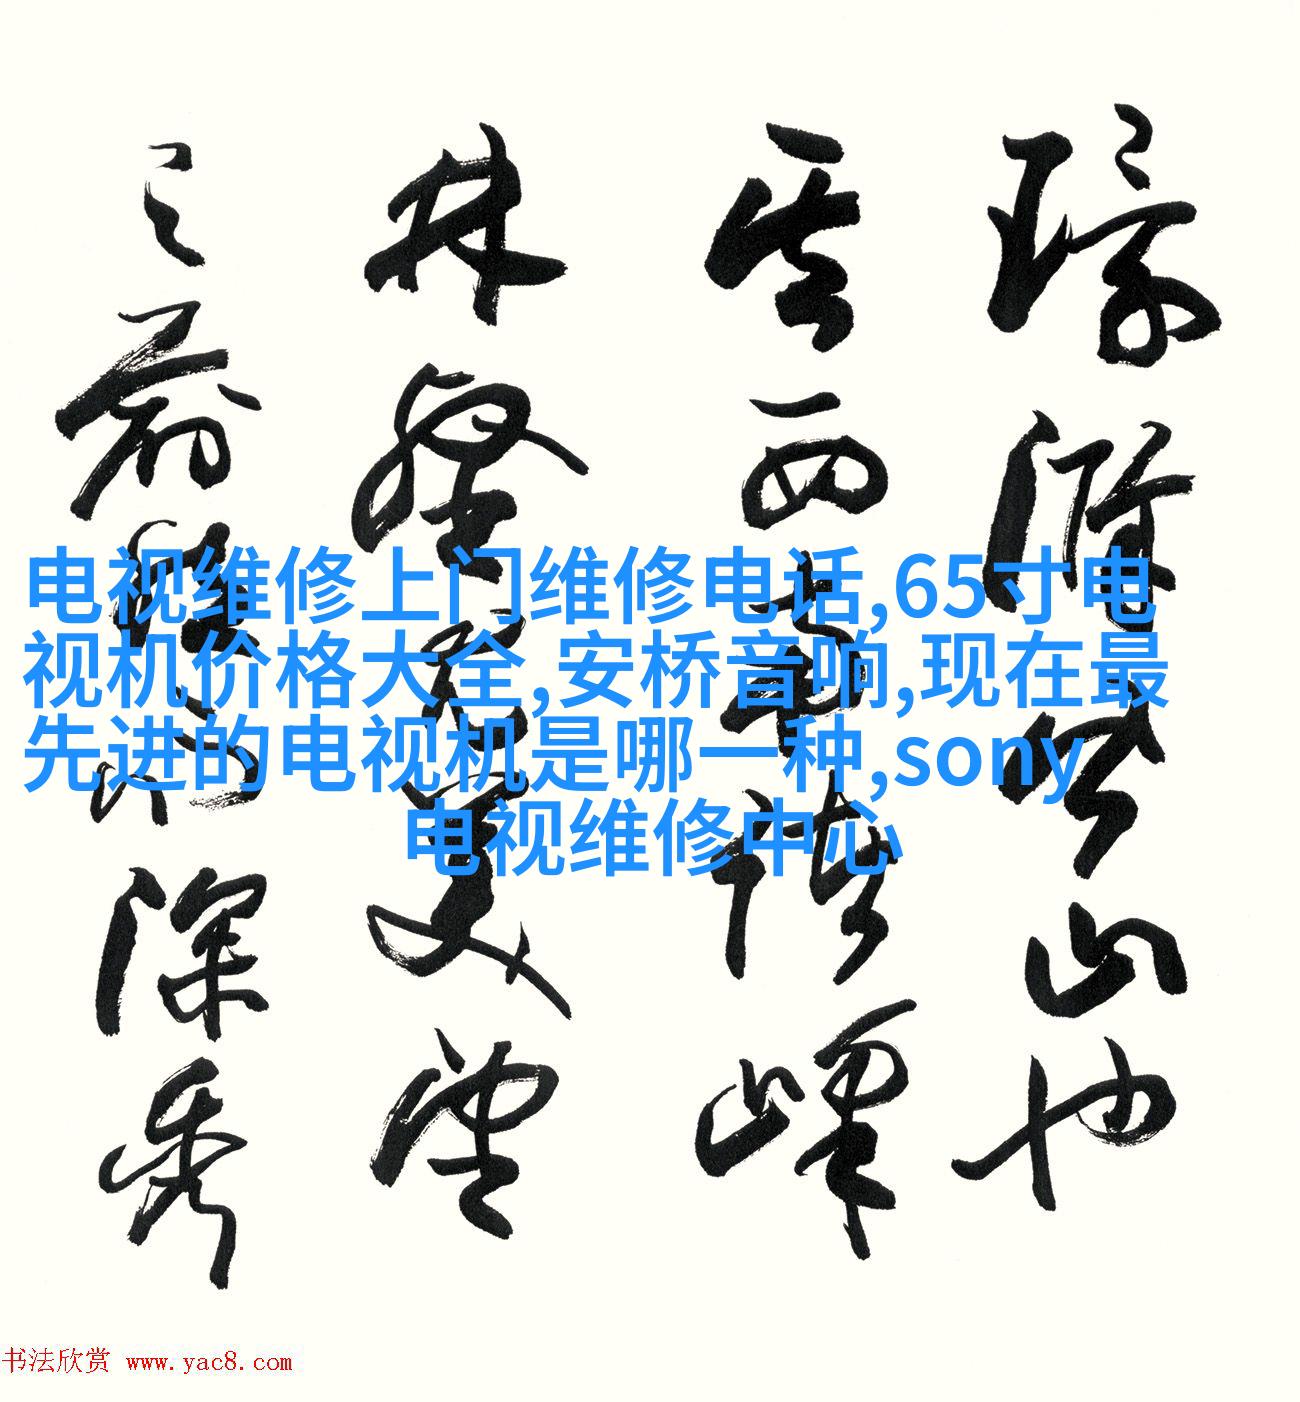 環滁皆山也
其西南諸峰
林壑尤美望
之蔚然而深秀
电视维修上门维修电话,65寸电
视机价格大全,安桥音响,现在最
先进的电视机是哪一种,sony
电视维修中心
书法欣赏 www.yac8.com